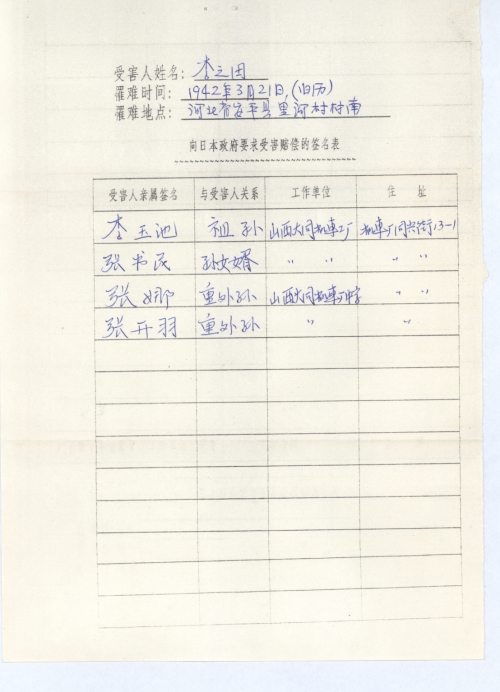 受害人姓名：李之田
罹难时间：1942年3月21日,(旧历)
罹难地点：河北省安平县里河村村南
向日本政府要求受害赔偿的签名表
受害人亲属签名 与受害人关系 工作单位 住 址
李玉池 祖孙 山西大同机车工厂 机车厂同兴街13-1
张书民 孙女婿 〃 〃 〃 〃
张娜 重外孙 山西大同机车厂中学 〃 〃
张开羽 重外孙 〃 〃